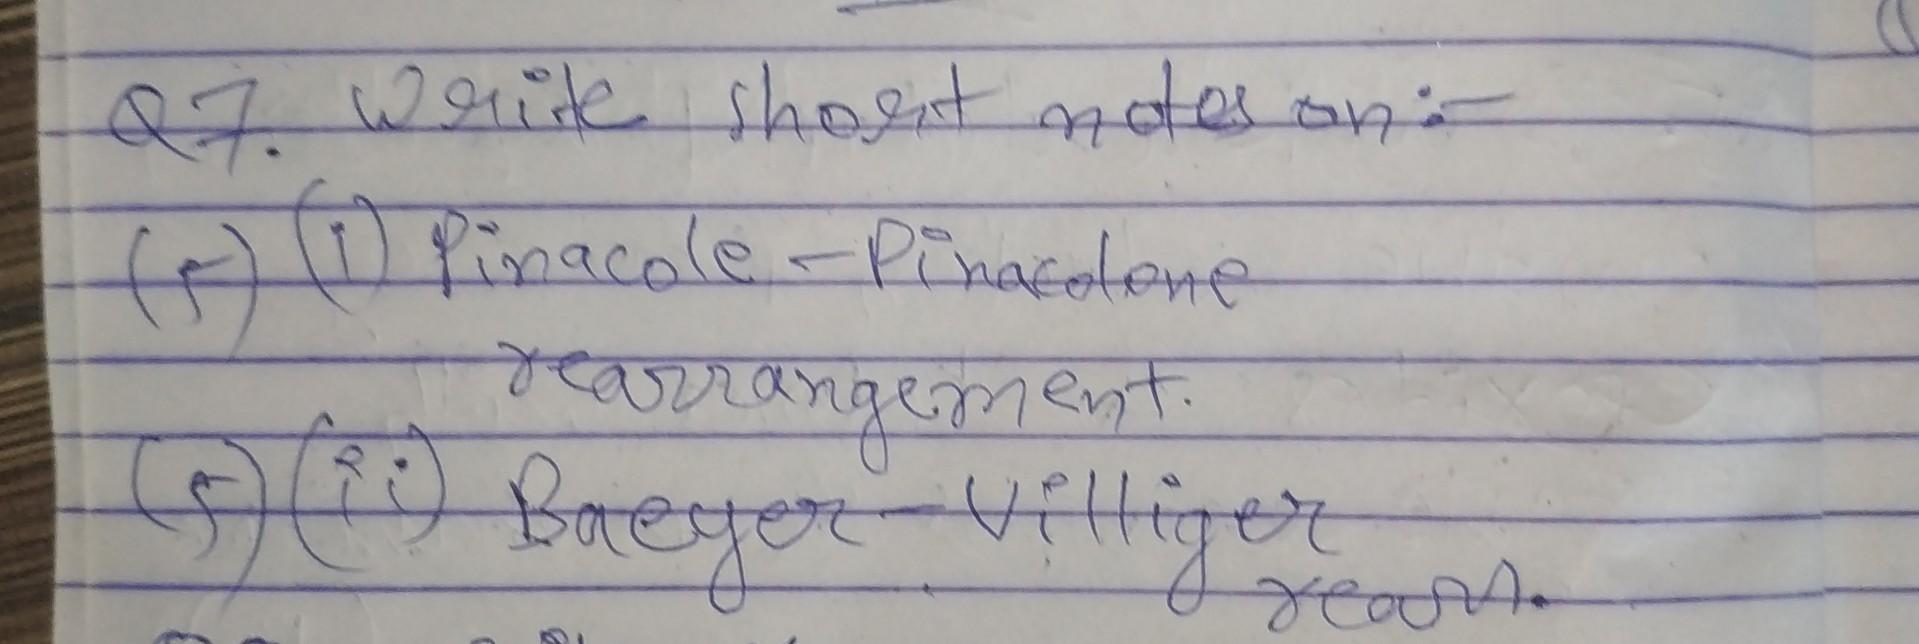 Q7. Write short notes on:-
(5) (i) Pinacole - Pinacolone
rearrangement.
(5) (ii) Baeyer - Villiger
rearr.